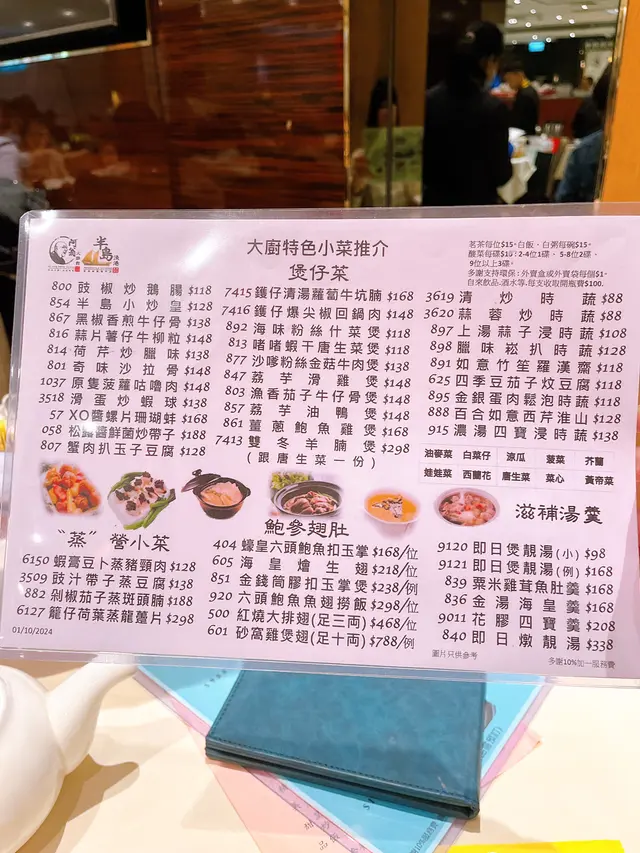 半島
漁港
大廚特色小菜推介
茗茶每位$15。白飯、白粥每碗$15。
酸菜每碟$15:2-4位1碟、5-8位2碟、
9位以上3碟。
多謝支持環保:外賣盒或外賣袋每個$1。
自來飲品.酒水等.每支收取開瓶費$100。
800 豉椒炒鵝腸 $118
854 半島小炒皇 $128
867 黑椒香煎牛仔骨 $138
816 蒜片薯仔牛柳粒 $148
814 荷芹炒臘味 $138
801 奇味沙拉骨 $148
1037 原隻菠蘿咕嚕肉 $148
3518 滑蛋炒蝦球 $138
57 XO醬螺片珊瑚蚌 $168
058 松露醬鮮菌炒帶子 $188
807 蟹肉扒玉子豆腐 $128
煲仔菜
7415 鑊仔清湯蘿蔔牛坑腩 $168
7416 鑊仔爆尖椒回鍋肉 $148
892 海味粉絲什菜煲 $118
813 啫啫蝦干唐生菜煲 $118
877 沙嗲粉絲金菇牛肉煲 $138
847 荔芋滑雞煲 $148
803 漁香茄子牛仔骨煲 $148
857 荔芋油鴨煲 $148
861 薑蔥鮑魚雞煲 $168
7413 雙冬羊腩煲 $298
(跟唐生菜一份)
3619 清炒時蔬 $88
3620 蒜蓉炒時蔬 $88
897 上湯蒜子浸時蔬 $108
898 臘味崧扒時蔬 $128
891 如意竹笙羅漢齋 $118
625 四季豆茄子炆豆腐 $118
895 金銀蛋肉鬆泡時蔬 $118
888 百合如意西芹淮山 $128
915 濃湯四寶浸時蔬 $138
油麥菜 白菜仔 涼瓜 菠菜 芥蘭
娃娃菜 西蘭花 唐生菜 菜心 黃帝菜
“蒸”營小菜
6150 蝦膏豆卜蒸豬頸肉 $128
3509 豉汁帶子蒸豆腐 $138
882 剁椒茄子蒸斑頭腩 $188
6127 籠仔荷葉蒸龍躉片 $298
01/10/2024
鮑參翅肚
404 蠔皇六頭鮑魚扣玉掌 $168/位
605 海皇燴生翅 $218/位
851 金錢筒膠扣玉掌 $238/位
920 六頭鮑魚魚翅撈飯 $298/位
500 紅燒大排翅(足三両) $468/位
601 砂窩雞煲翅(足十両) $788/例
滋補湯羹
9120 即日煲靚湯(小) $98
9121 即日煲靚湯(例) $168
839 粟米雞茸魚肚羹 $168
836 金湯海皇羹 $168
9011 花膠四寶羹 $208
840 即日燉靚湯 $338
圖片只供參考
多謝10%加一服務費